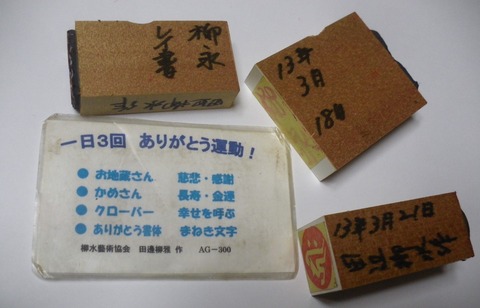 柳永
レイ書
13年
3月
18日
一日3回 ありがとう運動!
● お地蔵さん 慈悲・感謝
● かめさん 長寿・金運
● クローバー 幸せを呼ぶ
● ありがとう書体 まねき文字
柳水藝術協会 田邊柳雅 作 AG-300
13年3月21日